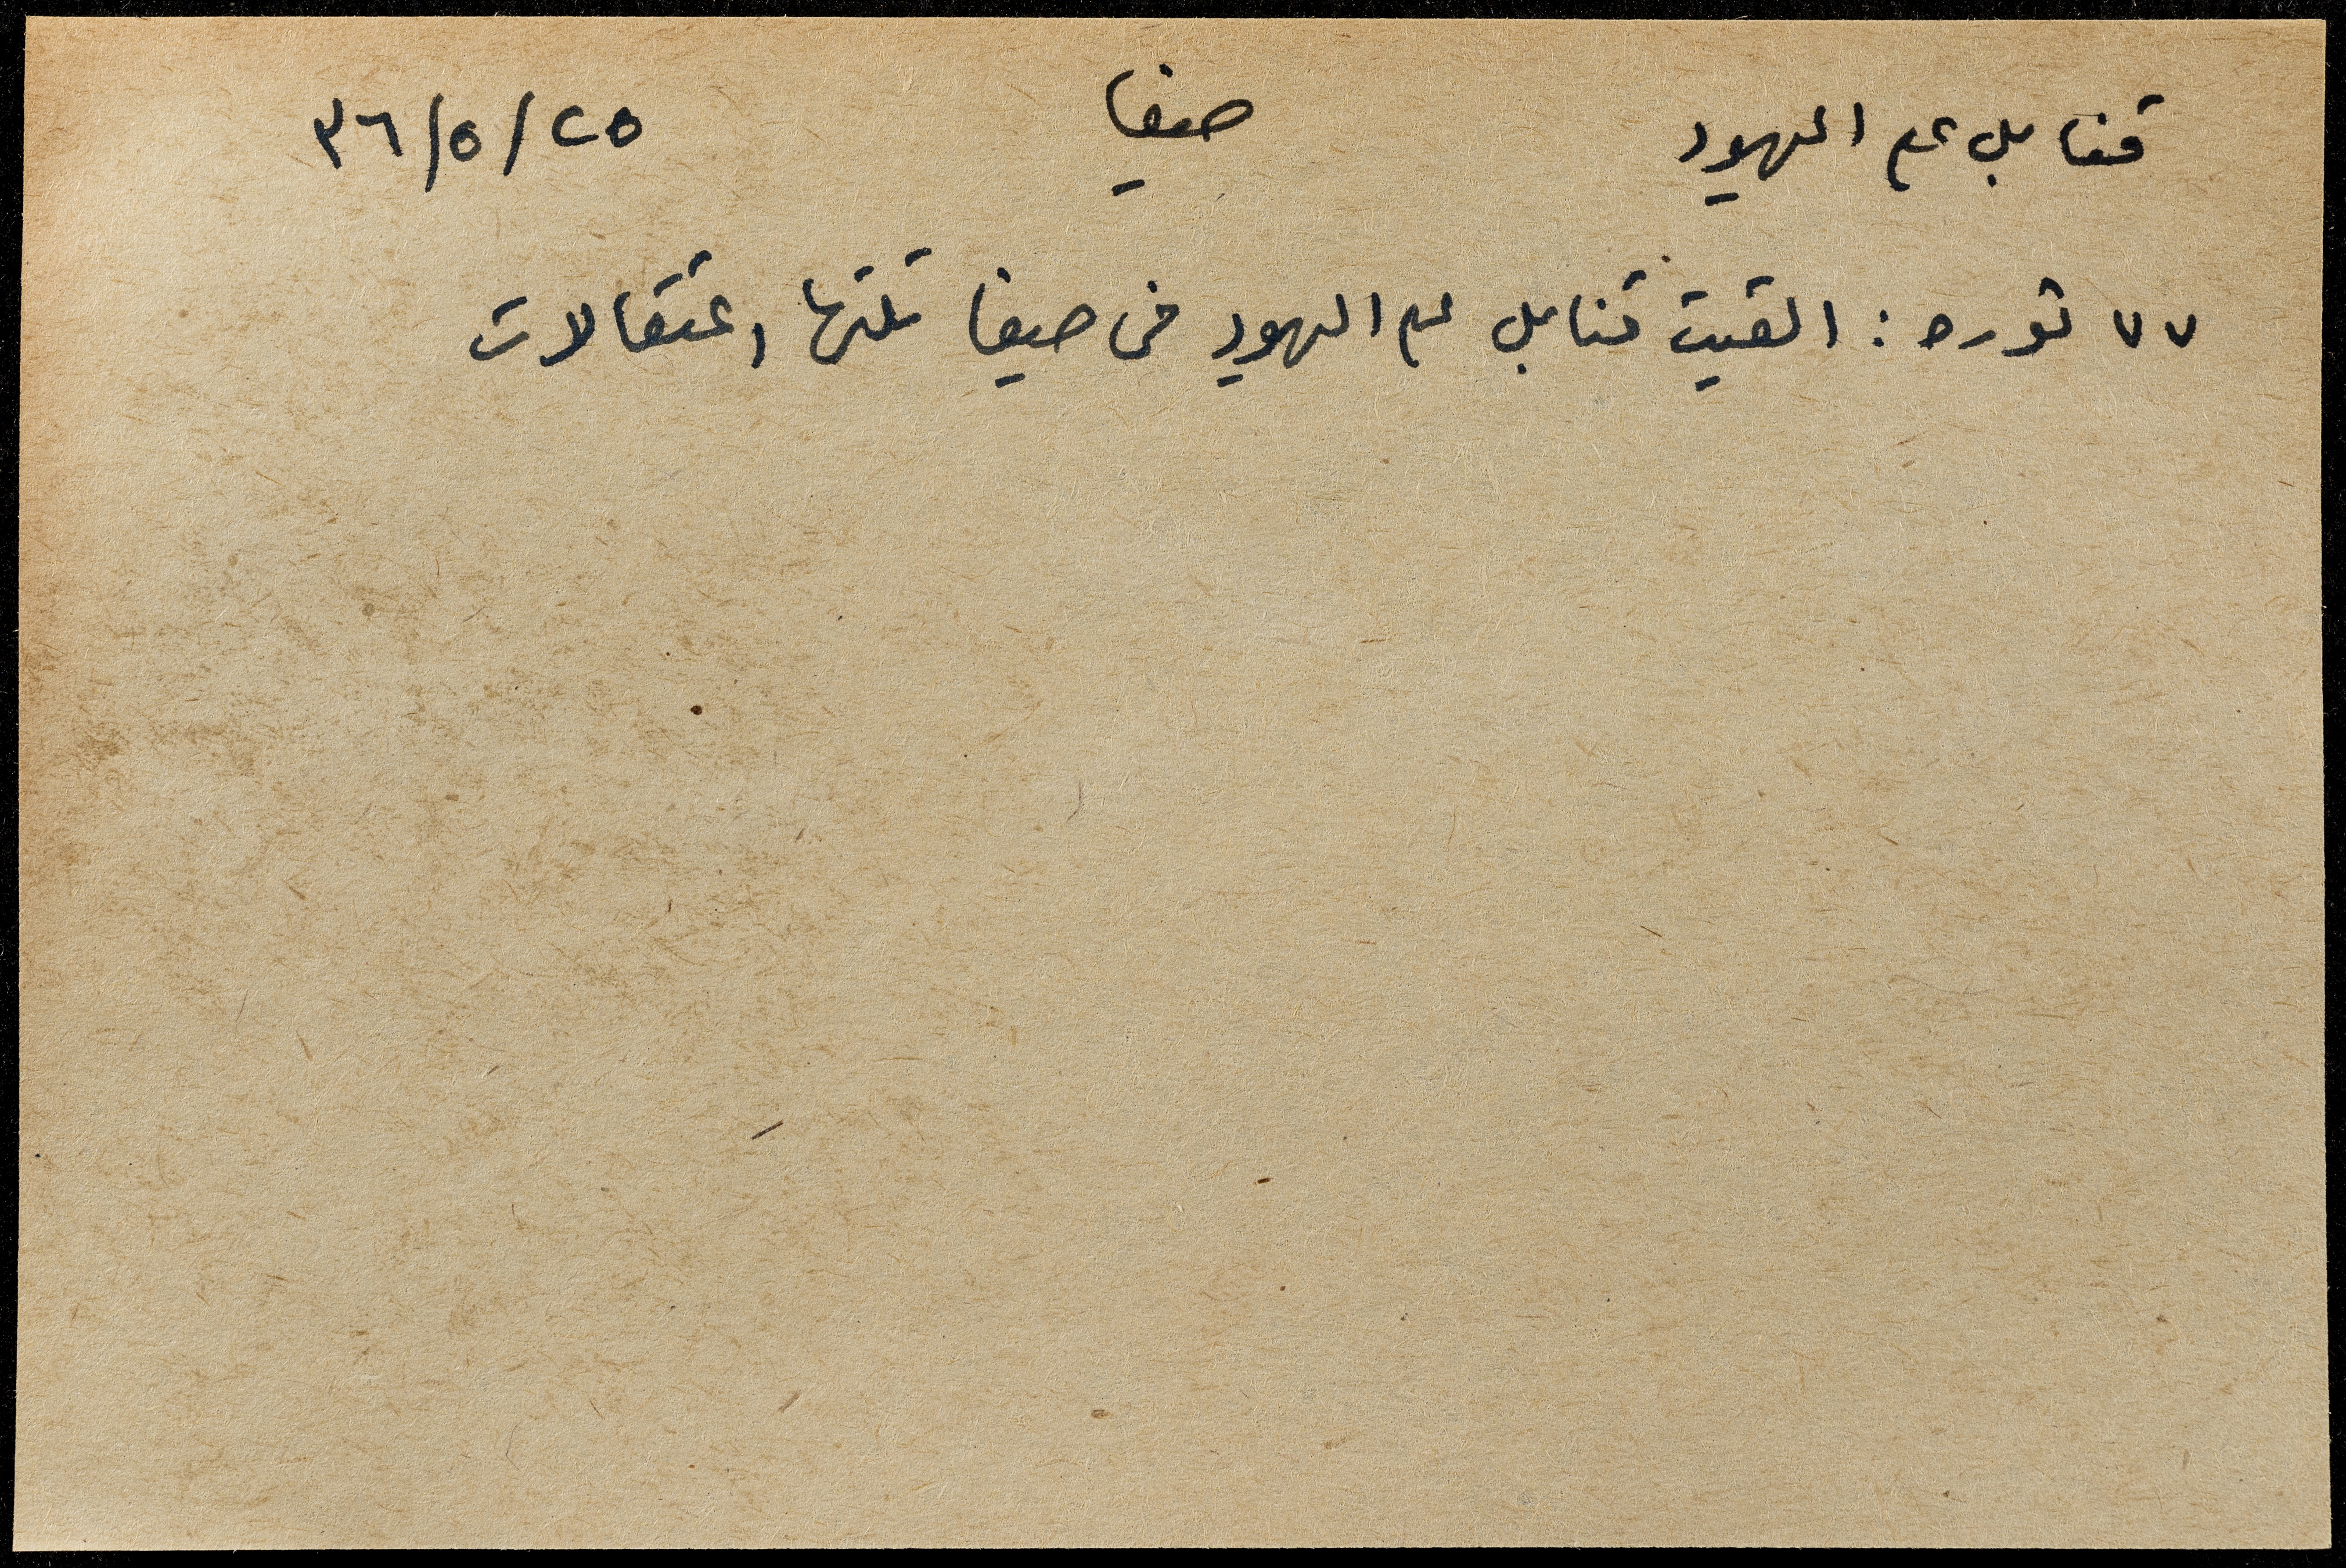 قنابل على اليهود حيفا ٢٥/٥/٣٦
٧٧ ثوره : القيت قنابل على اليهود في حيفا تلتها اعتقالات